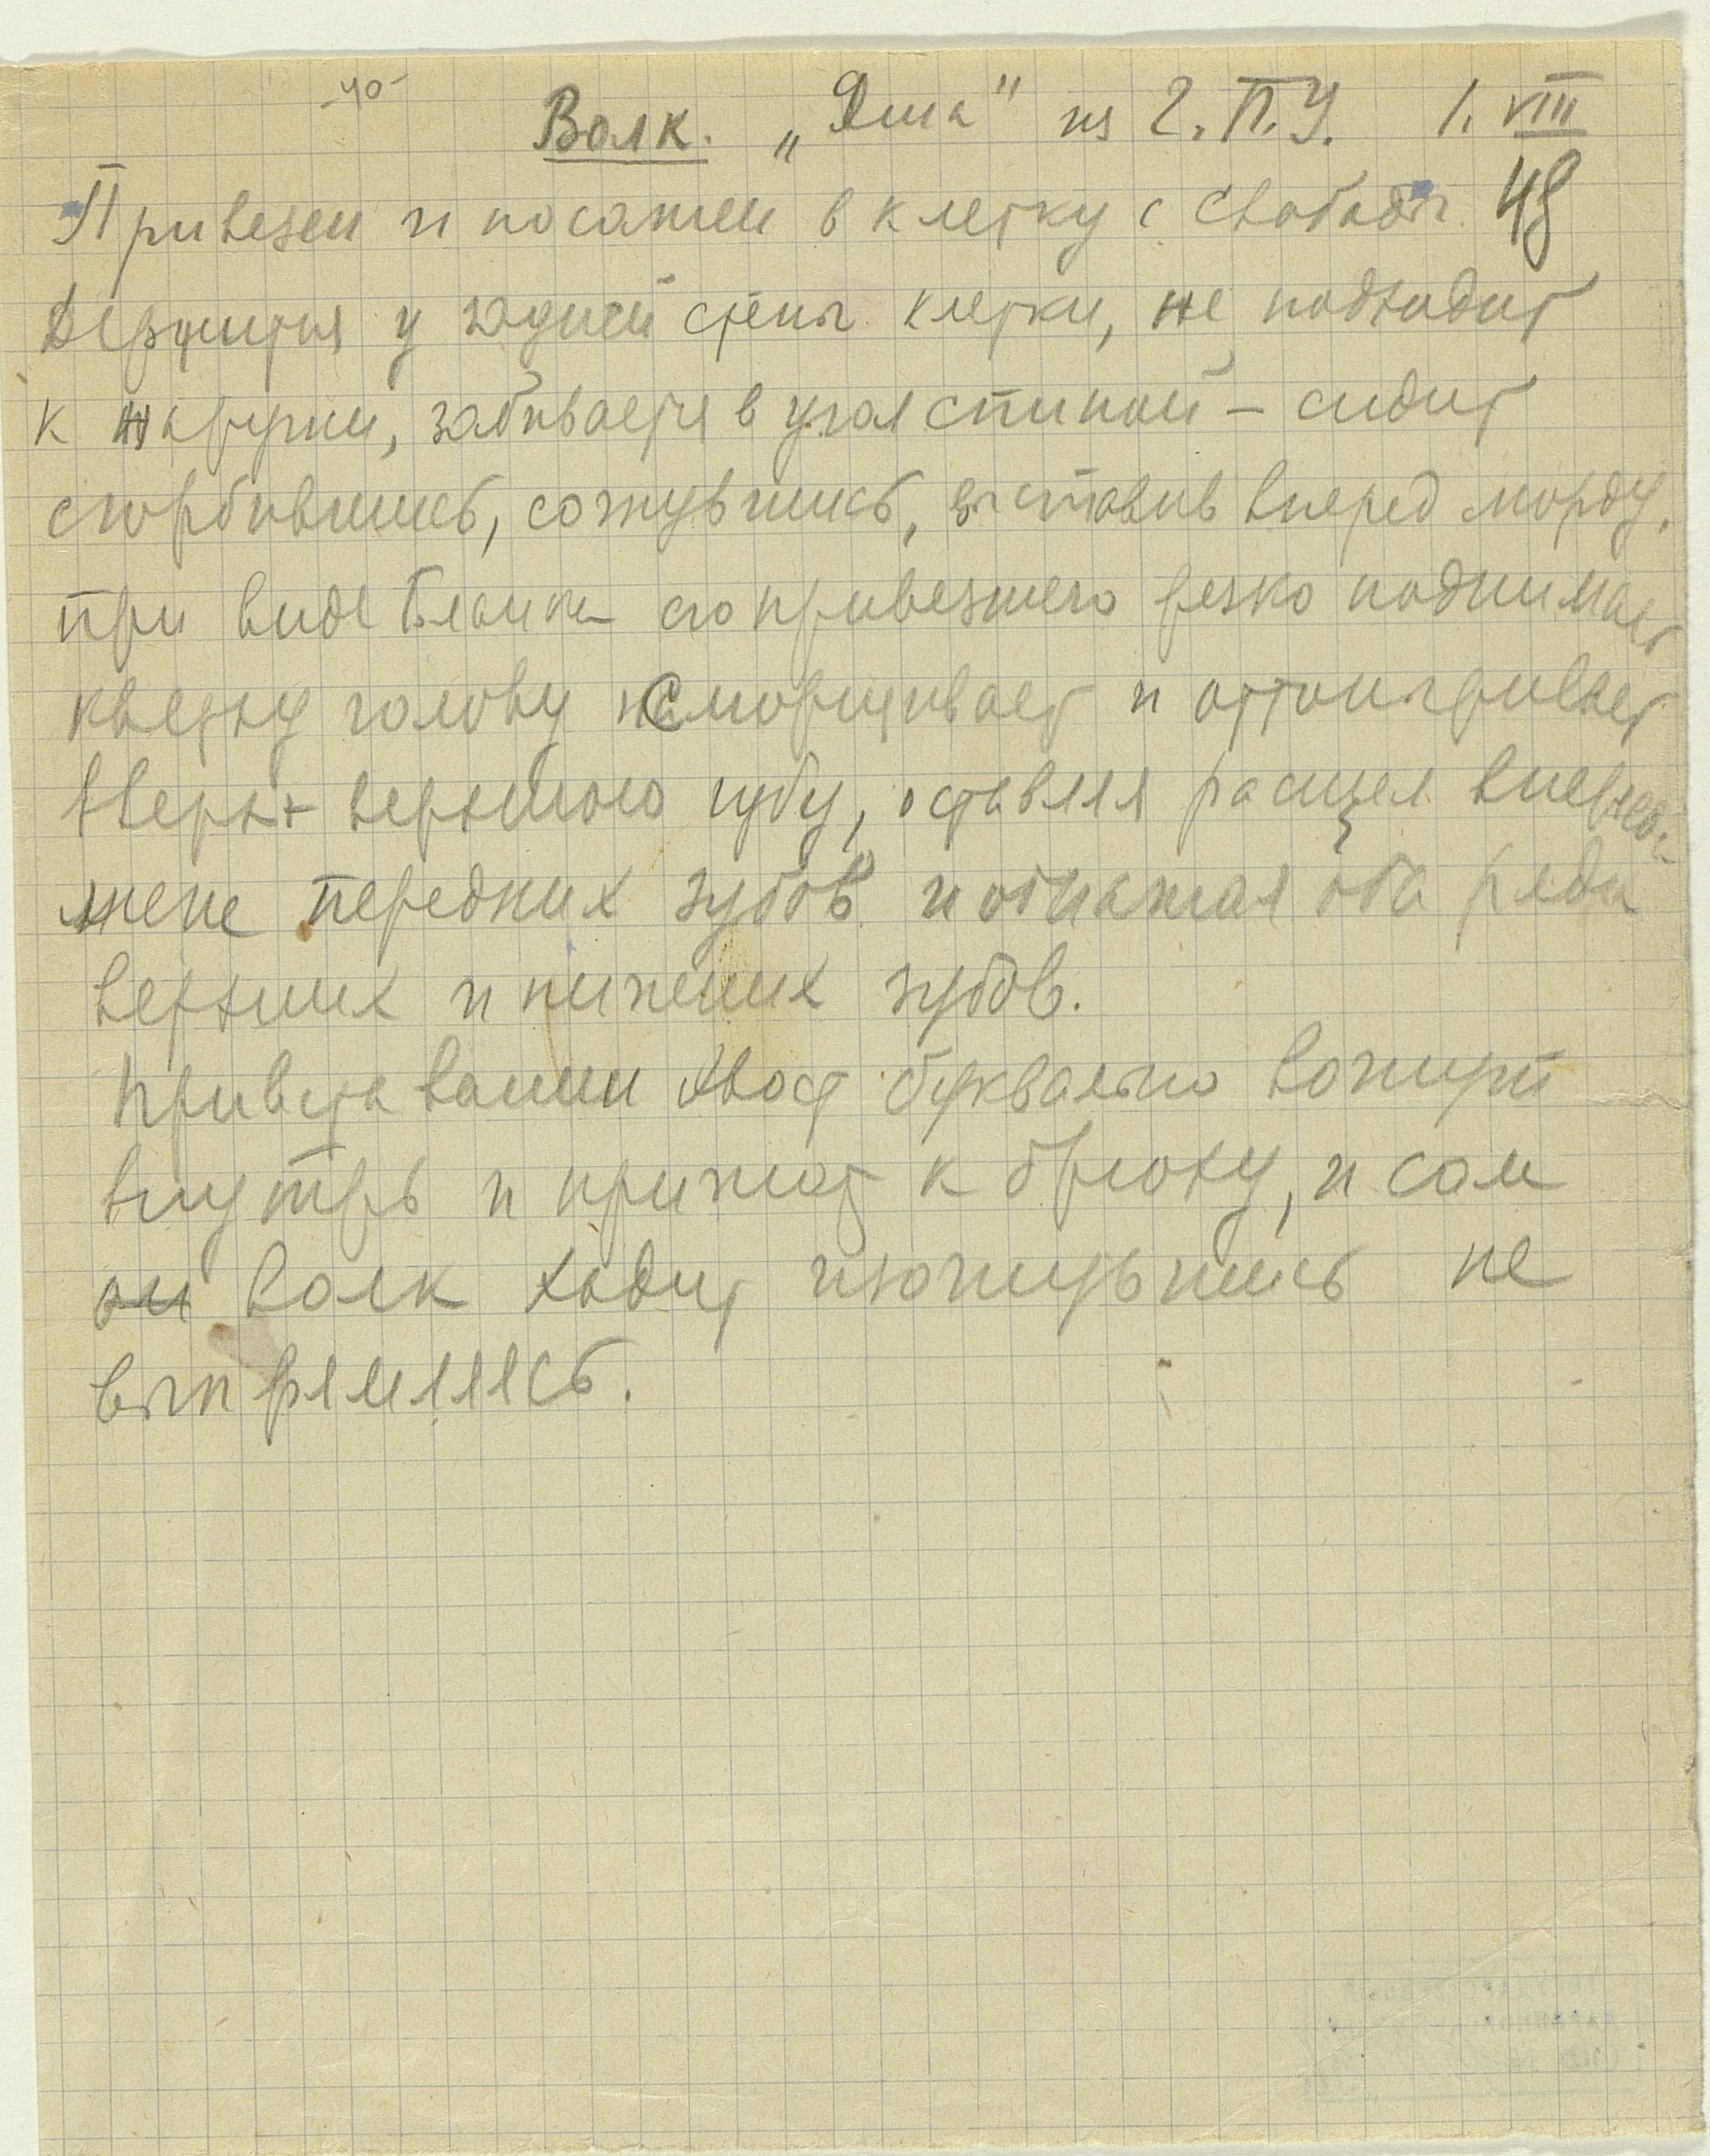 -40-
Волк. „Яша" из Г.П.У. 1. VIII
Привезен и посажен в клетку с свободы 48
Держится у задней стены клетки, не подходит
к наружи, забивается в угол спиной – сидит
сгорбившись, сожувшись, выставив вперед морду.
При виде близко его привезшего резко поднимает
кверху голову сморщивает и оттопыривает
вверх верхнюю губу, оставляя расщел
передних зубов и обнажая оба ряда
верхних и нижних зубов.
При вставании хвост буквально вогнут
внутрь и прижат к брюху, и сам
он волк ходит изогнувшись не
выпрямляясь.